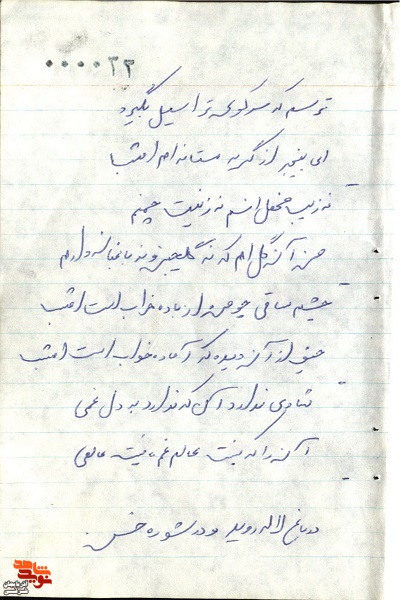 ۰۰۰۰۳۲
ترسم که سر کوی ترا سیل بگیرد
ای بیخبر از گریه مستانه ام امشب
نه زیب محفل انسم نه زینت چمنم
من آن گل ام که نه گلچین و نه باغبان دارم
چشم ساقی چو من از باده خراب است امشب
حیف از آن دیده که آماده خواب است امشب
شادی ندارد آن که ندارد به دل غمی
آن را که نیست عالم غم نیست عالمی
در باغ لاله روید و در شوره خس
شاهد
نوید